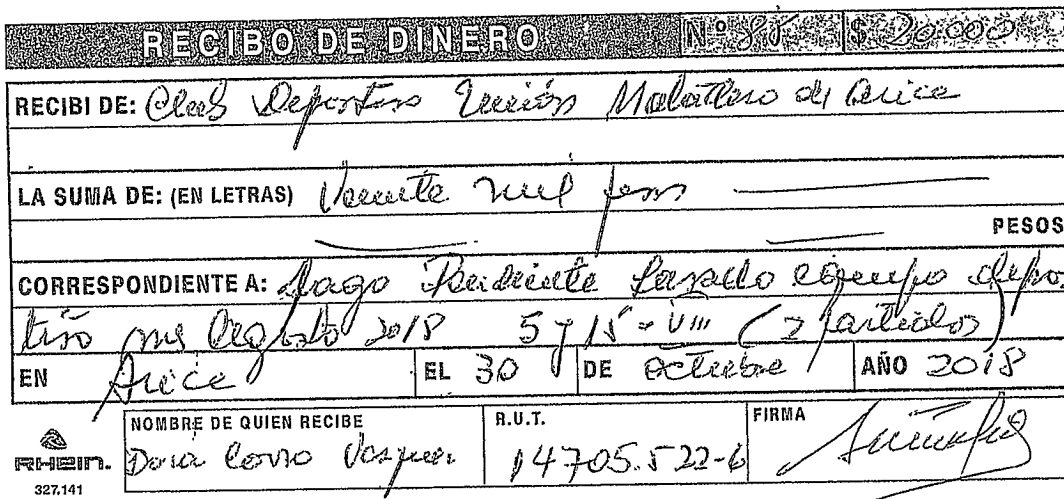 RECIBO DE DINERO N° 85 $ 20.000
RECIBI DE: Club Deportivo Unión Matadero de Arica
LA SUMA DE: (EN LETRAS) Veinte mil pesos
PESOS
CORRESPONDIENTE A: Pago Pendiente Lavado equipo depor
tivo mes Agosto 2018 5 y 15 - VIII (2 partidos)
EN Arica EL 30 DE octubre AÑO 2018
NOMBRE DE QUIEN RECIBE R.U.T. FIRMA
Dora Corro Vasquez 14705.522-6
RHEIN.
327.141